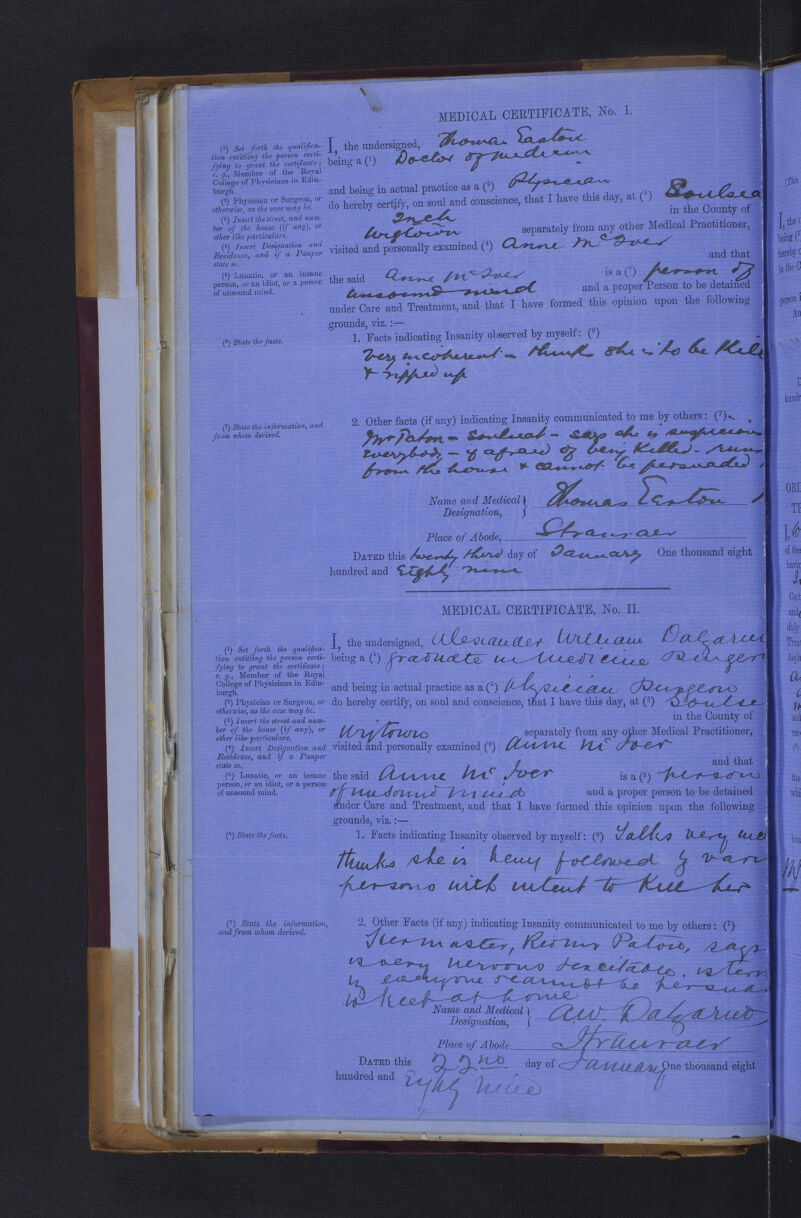 MEDICAL CERTIFICATE, No. I.
(¹) Set forth the qualifica-
tion entitling the person certi-
fying to grant the certificate;
e. g., Member of the Royal
College of Physicians in Edin-
burgh.
(²) Physician or Surgeon, or
otherwise, as the case may be.
(³) Insert the street, and num-
ber of the house (if any), or
other like particulars.
(⁴) Insert Designation and
Residence, and if a Pauper
state so.
(⁵) Lunatic, or an insane
person, or an idiot, or a person
of unsound mind.
I, the undersigned, Thomas Easton
being a (¹) Doctor of Medicine
and being in actual practice as a (²) Physician
do hereby certify, on soul and conscience, that I have this day, at (³) Soulsea
Inch in the County of
Wigtown separately from any other Medical Practitioner,
visited and personally examined (⁴) Anne McIver
and that
the said Anne McIver is a (⁵) person of
unsound mind and a proper Person to be detained
under Care and Treatment, and that I have formed this opinion upon the following
grounds, viz. :—
(⁶) State the facts.
1. Facts indicating Insanity observed by myself: (⁶)
Very incoherent - thinks she is to be kill
& ripped up
(⁷) State the information, and
from whom derived.
2. Other facts (if any) indicating Insanity communicated to me by others: (⁷)
Mr Paton - Soulseat - says she is suspicious
everybody - is afraid of being killed - runs
from the house & cannot be persuaded
Name and Medical Designation, Thomas Easton
Place of Abode, Stranraer
DATED this twenty third day of January One thousand eight
hundred and Eighty nine
MEDICAL CERTIFICATE, No. II.
(¹) Set forth the qualifica-
tion entitling the person certi-
fying to grant the certificate;
e. g., Member of the Royal
College of Physicians in Edin-
burgh.
(²) Physician or Surgeon, or
otherwise, as the case may be.
(³) Insert the street and num-
ber of the house (if any), or
other like particulars.
(⁴) Insert Designation and
Residence, and if a Pauper
state so.
(⁵) Lunatic, or an insane
person, or an idiot, or a person
of unsound mind.
I, the undersigned, Alexander William Dalzarno
being a (¹) Graduate in Medicine & Surger
and being in actual practice as a (²) Physician & Surgeon
do hereby certify, on soul and conscience, that I have this day, at (³) Soulse
in the County of
Wigtown separately from any other Medical Practitioner,
visited and personally examined (⁴) Anne McIver
and that
the said Anne McIver is a (⁵) person
of unsound mind and a proper person to be detained
under Care and Treatment, and that I have formed this opinion upon the following
grounds, viz. :—
(⁶) State the facts.
1. Facts indicating Insanity observed by myself: (⁶) Talks very inc
thinks she is being followed by vari
persons with intent to kill her
(⁷) State the information,
and from whom derived.
2. Other Facts (if any) indicating Insanity communicated to me by others: (⁷)
Her master, Paton, says
is very nervous & excitable, is
everyone & cannot be persua
to keep at home
Name and Medical Designation, A.W.
Place of Abode Stranraer
DATED this 22nd day of January One thousand eight
hundred and Eighty Nine